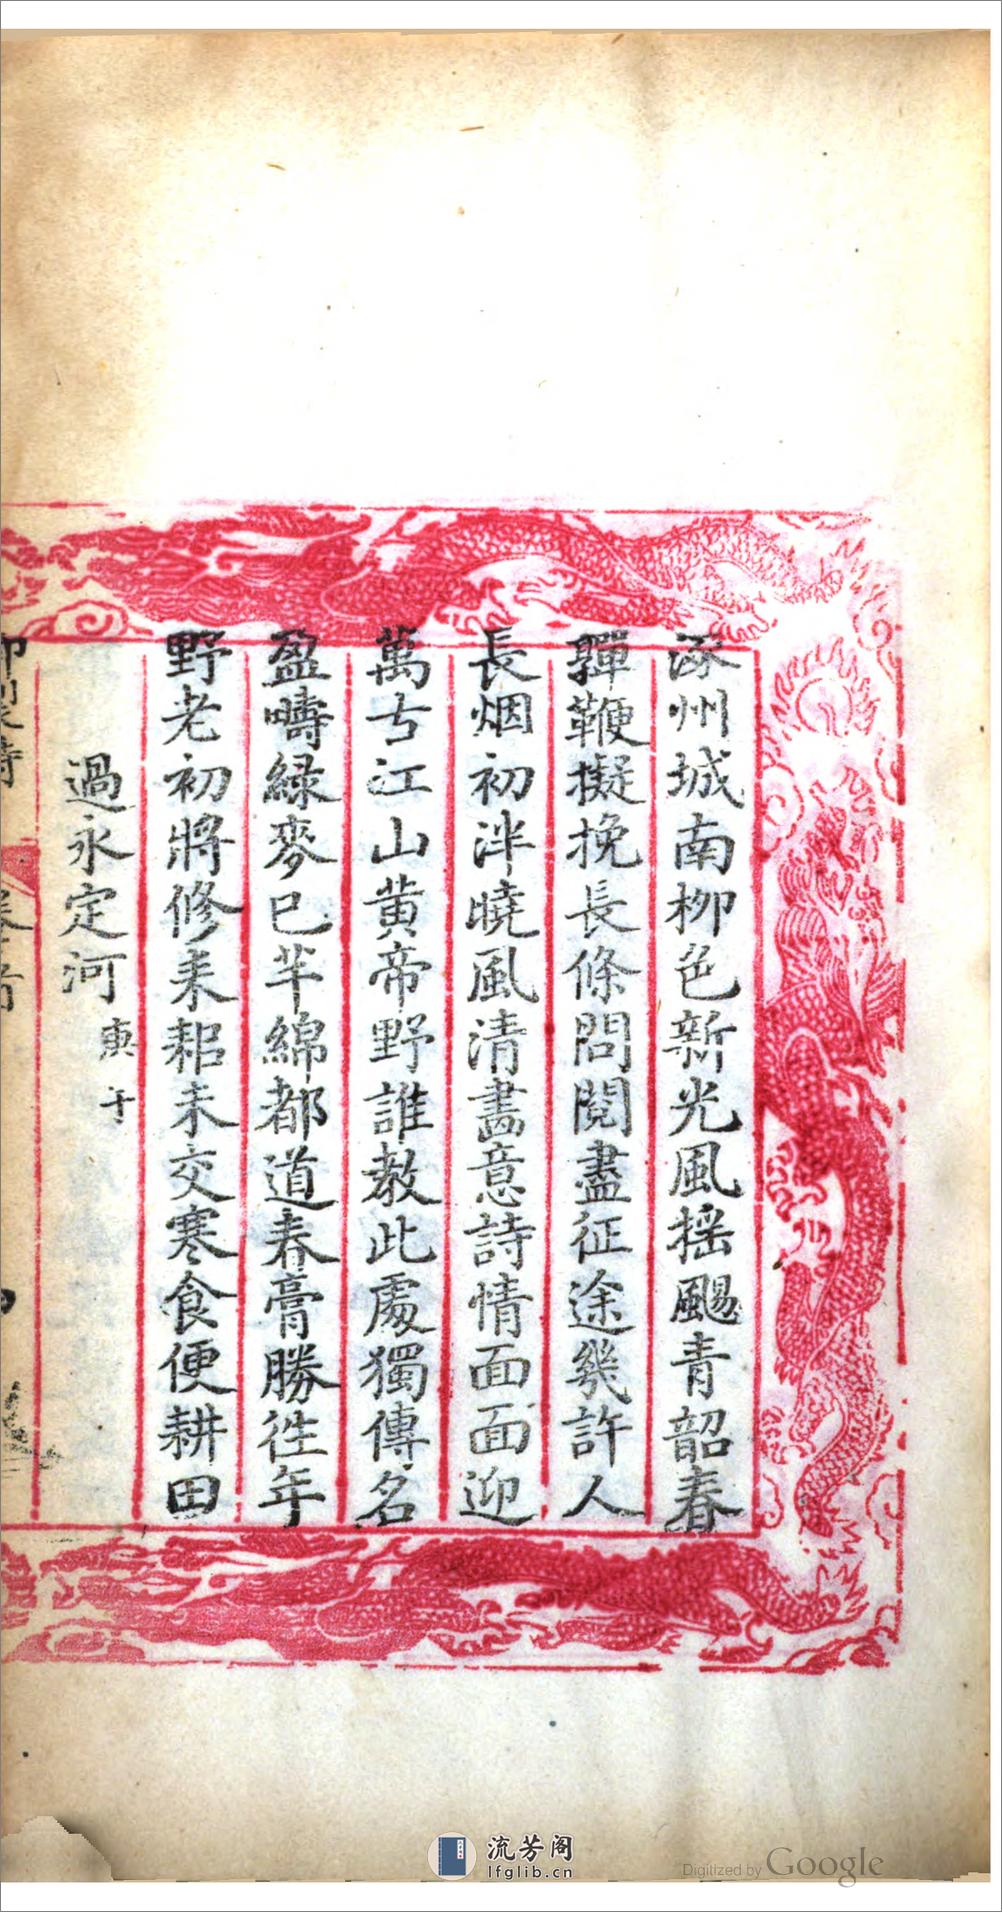 涿州城南柳色新光風揺颺青韶春
嚲鞭擬挽長條問閱盡征途幾許人
長烟初泮曉風清畵意詩情面面迎
萬古江山黄帝野誰教此處獨傳名
盈疇緑麥已芊綿都道春膏勝徃年
野老初將修耒耜未交寒食便耕田
過永定河 庚午
御製詩
流芳阁
lfglib.cn
Digitized by Google